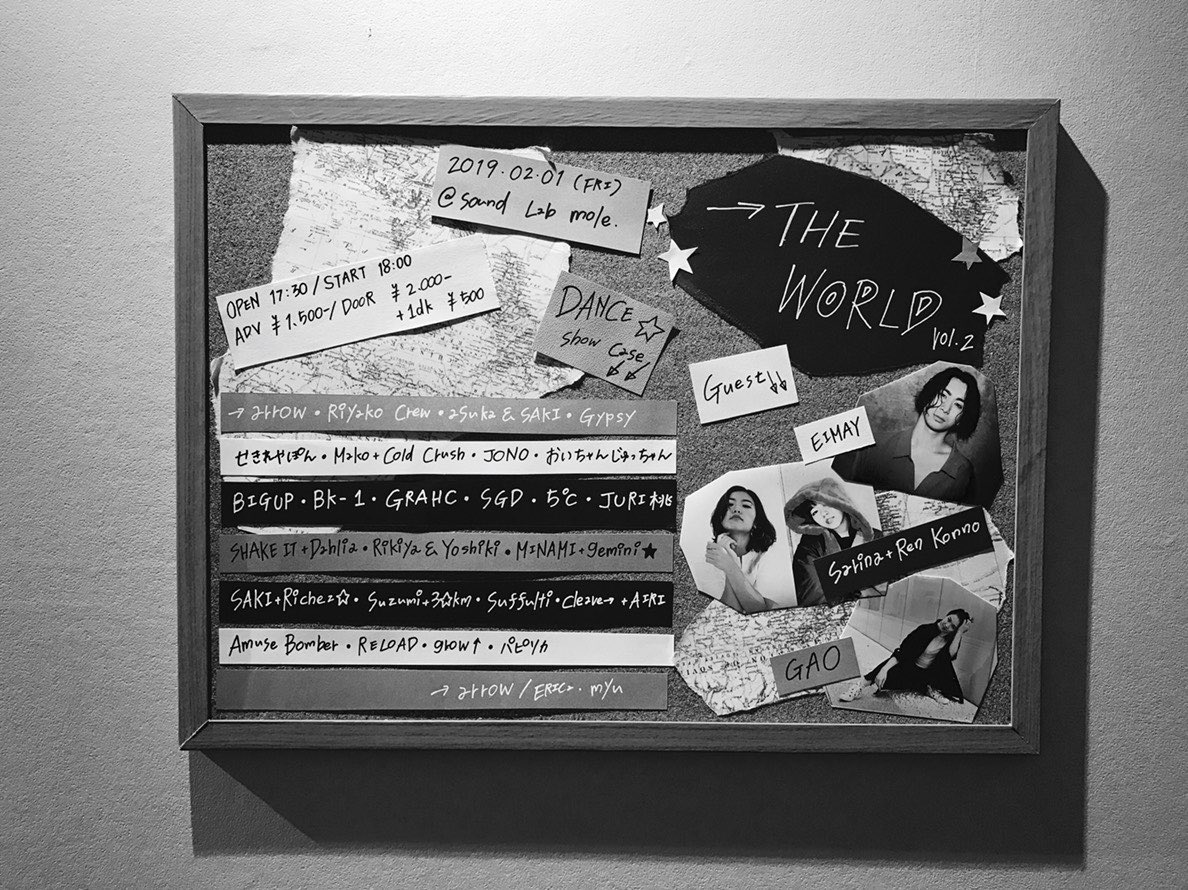 2019.02.01 (FRI)
@ Sound Lab mole.
→ THE
WORLD
vol.2
OPEN 17:30 / START 18:00
ADV ¥1.500-/ DOOR ¥2.000-
+1dk ¥500
DANCE☆
Show Case
↙↙
Guest↓↓
EIMAY
Sarina+Ren Konno
GAO
→ arrow・Riyako Crew・asuka & SAKI・Gypsy
せきれやぽん・Mako+Cold Crush・JONO・おいちゃんじゅっちゃん
BIGUP・BK-1・GRAHC・SGD・5℃・JURI桃
SHAKE IT+Dahlia・Rikiya & Yoshiki・MINAMI+gemini★
SAKI+Richez☆・Suzumi+3☆km・Suffulti・Cleave→+AIRI
Amuse Bomber・RELOAD・grow↑・パピリカ
→ arrow / ERICa・myu